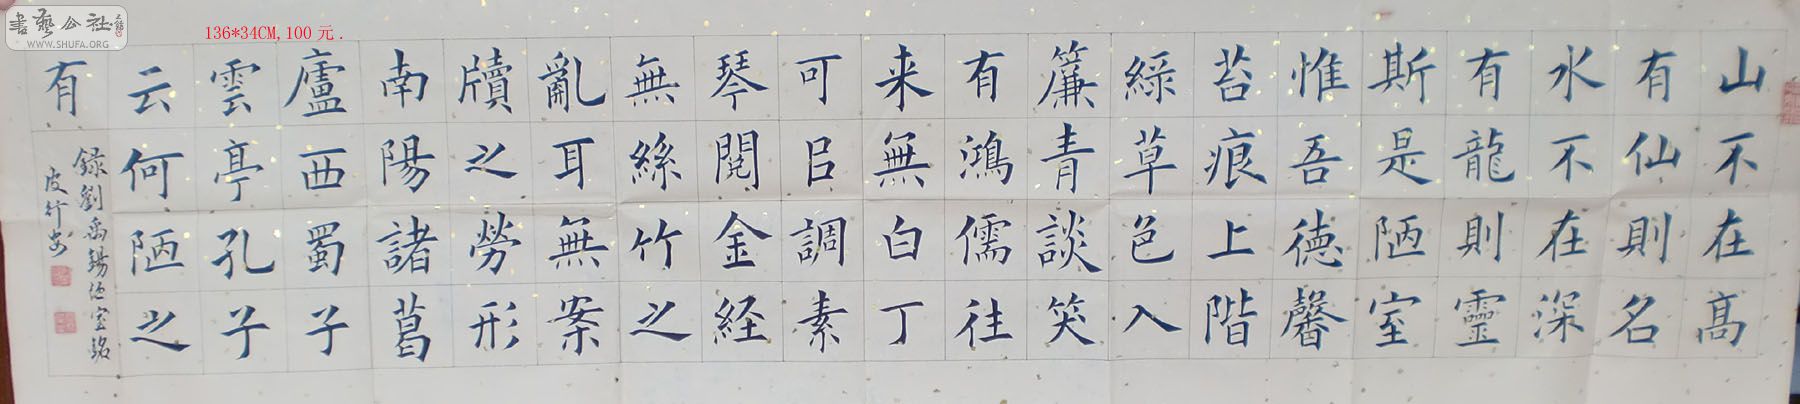 書藝公社
WWW.SHUFA.ORG
136*34CM,100元.
山不在高
有仙則名
水不在深
有龍則靈
斯是陋室
惟吾德馨
苔痕上階
綠草色入
簾青談笑
有鴻儒往
来無白丁
可㠯調素
琴閱金経
無絲竹之
亂耳無案
牘之勞形
南陽諸葛
廬西蜀子
雲亭孔子
云何陋之
有
錄劉禹錫陋室銘